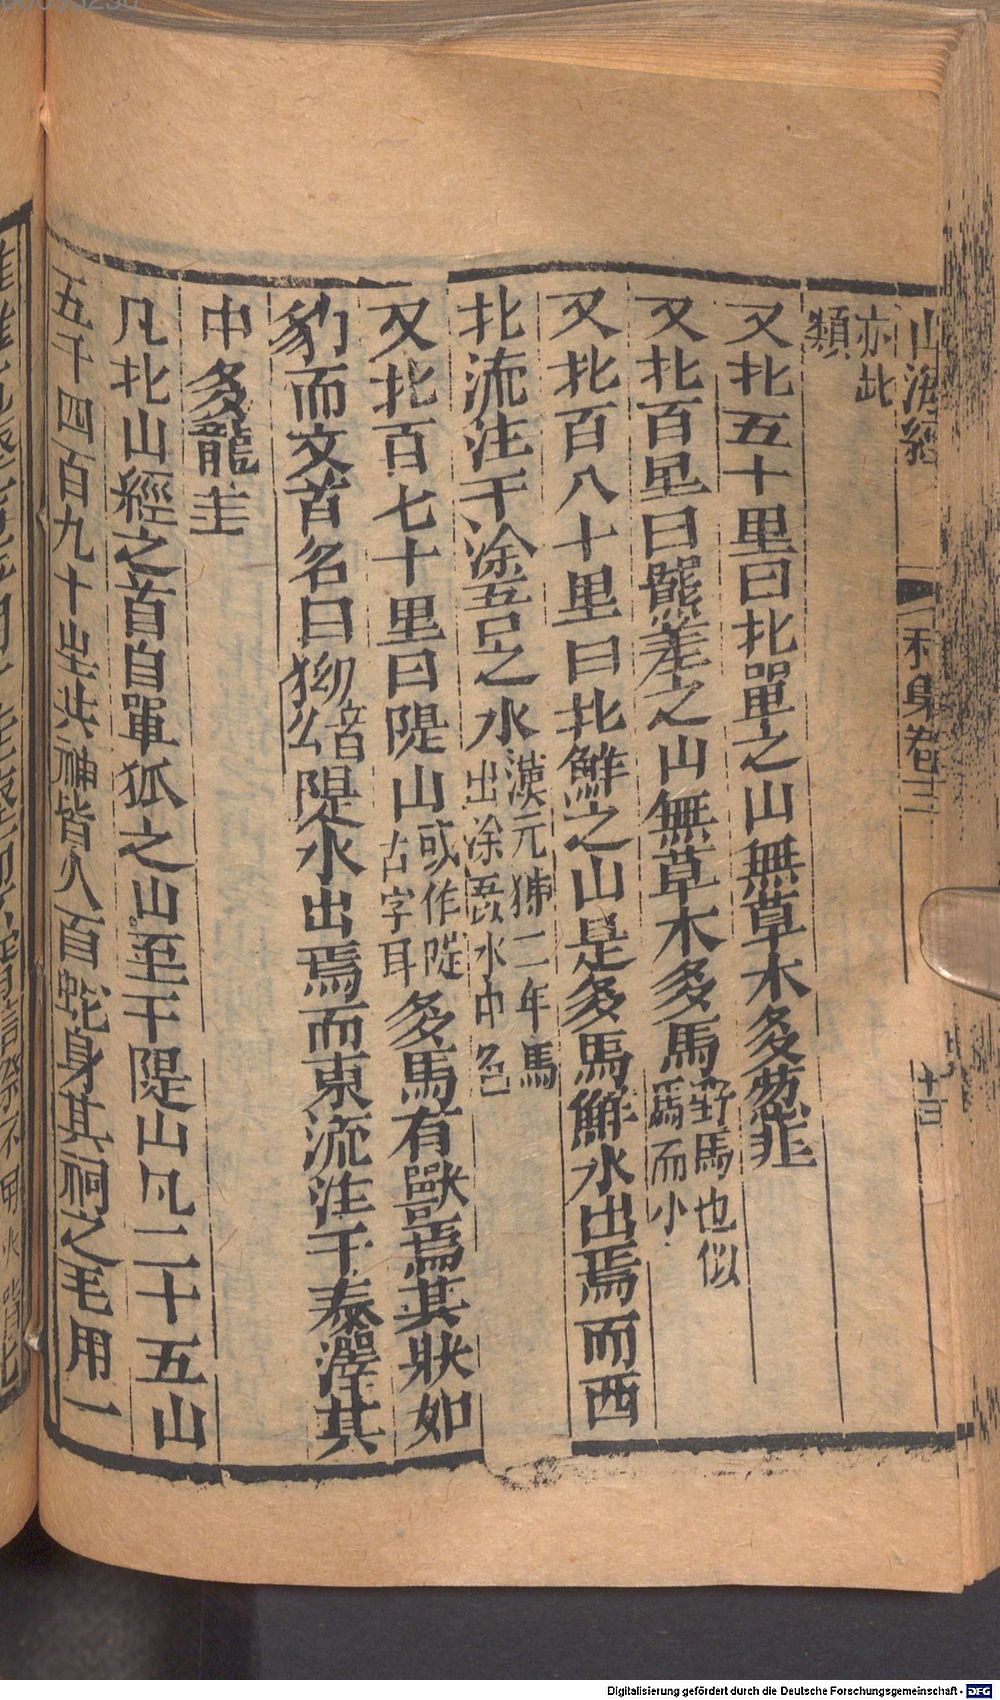 山海經　利集卷三　十三
亦此
類
又北五十里曰北單之山無草木多葱韭
又北百里曰羆差之山無草木多馬野馬也似馬而小
又北百八十里曰北鮮之山是多馬鮮水出焉而西
北流注于涂吾之水漢元狩二年馬出涂吾水中
又北百七十里曰隄山或作㲚古字耳多馬有獸焉其狀如
豹而文首名曰狕音幺隄水出焉而東流注于泰澤其
中多龍龜
凡北山經之首自單狐之山至于隄山凡二十五山
五千四百九十里其神皆人首蛇身其祠之毛用一
Digitalisierung gefördert durch die Deutsche Forschungsgemeinschaft - DFG